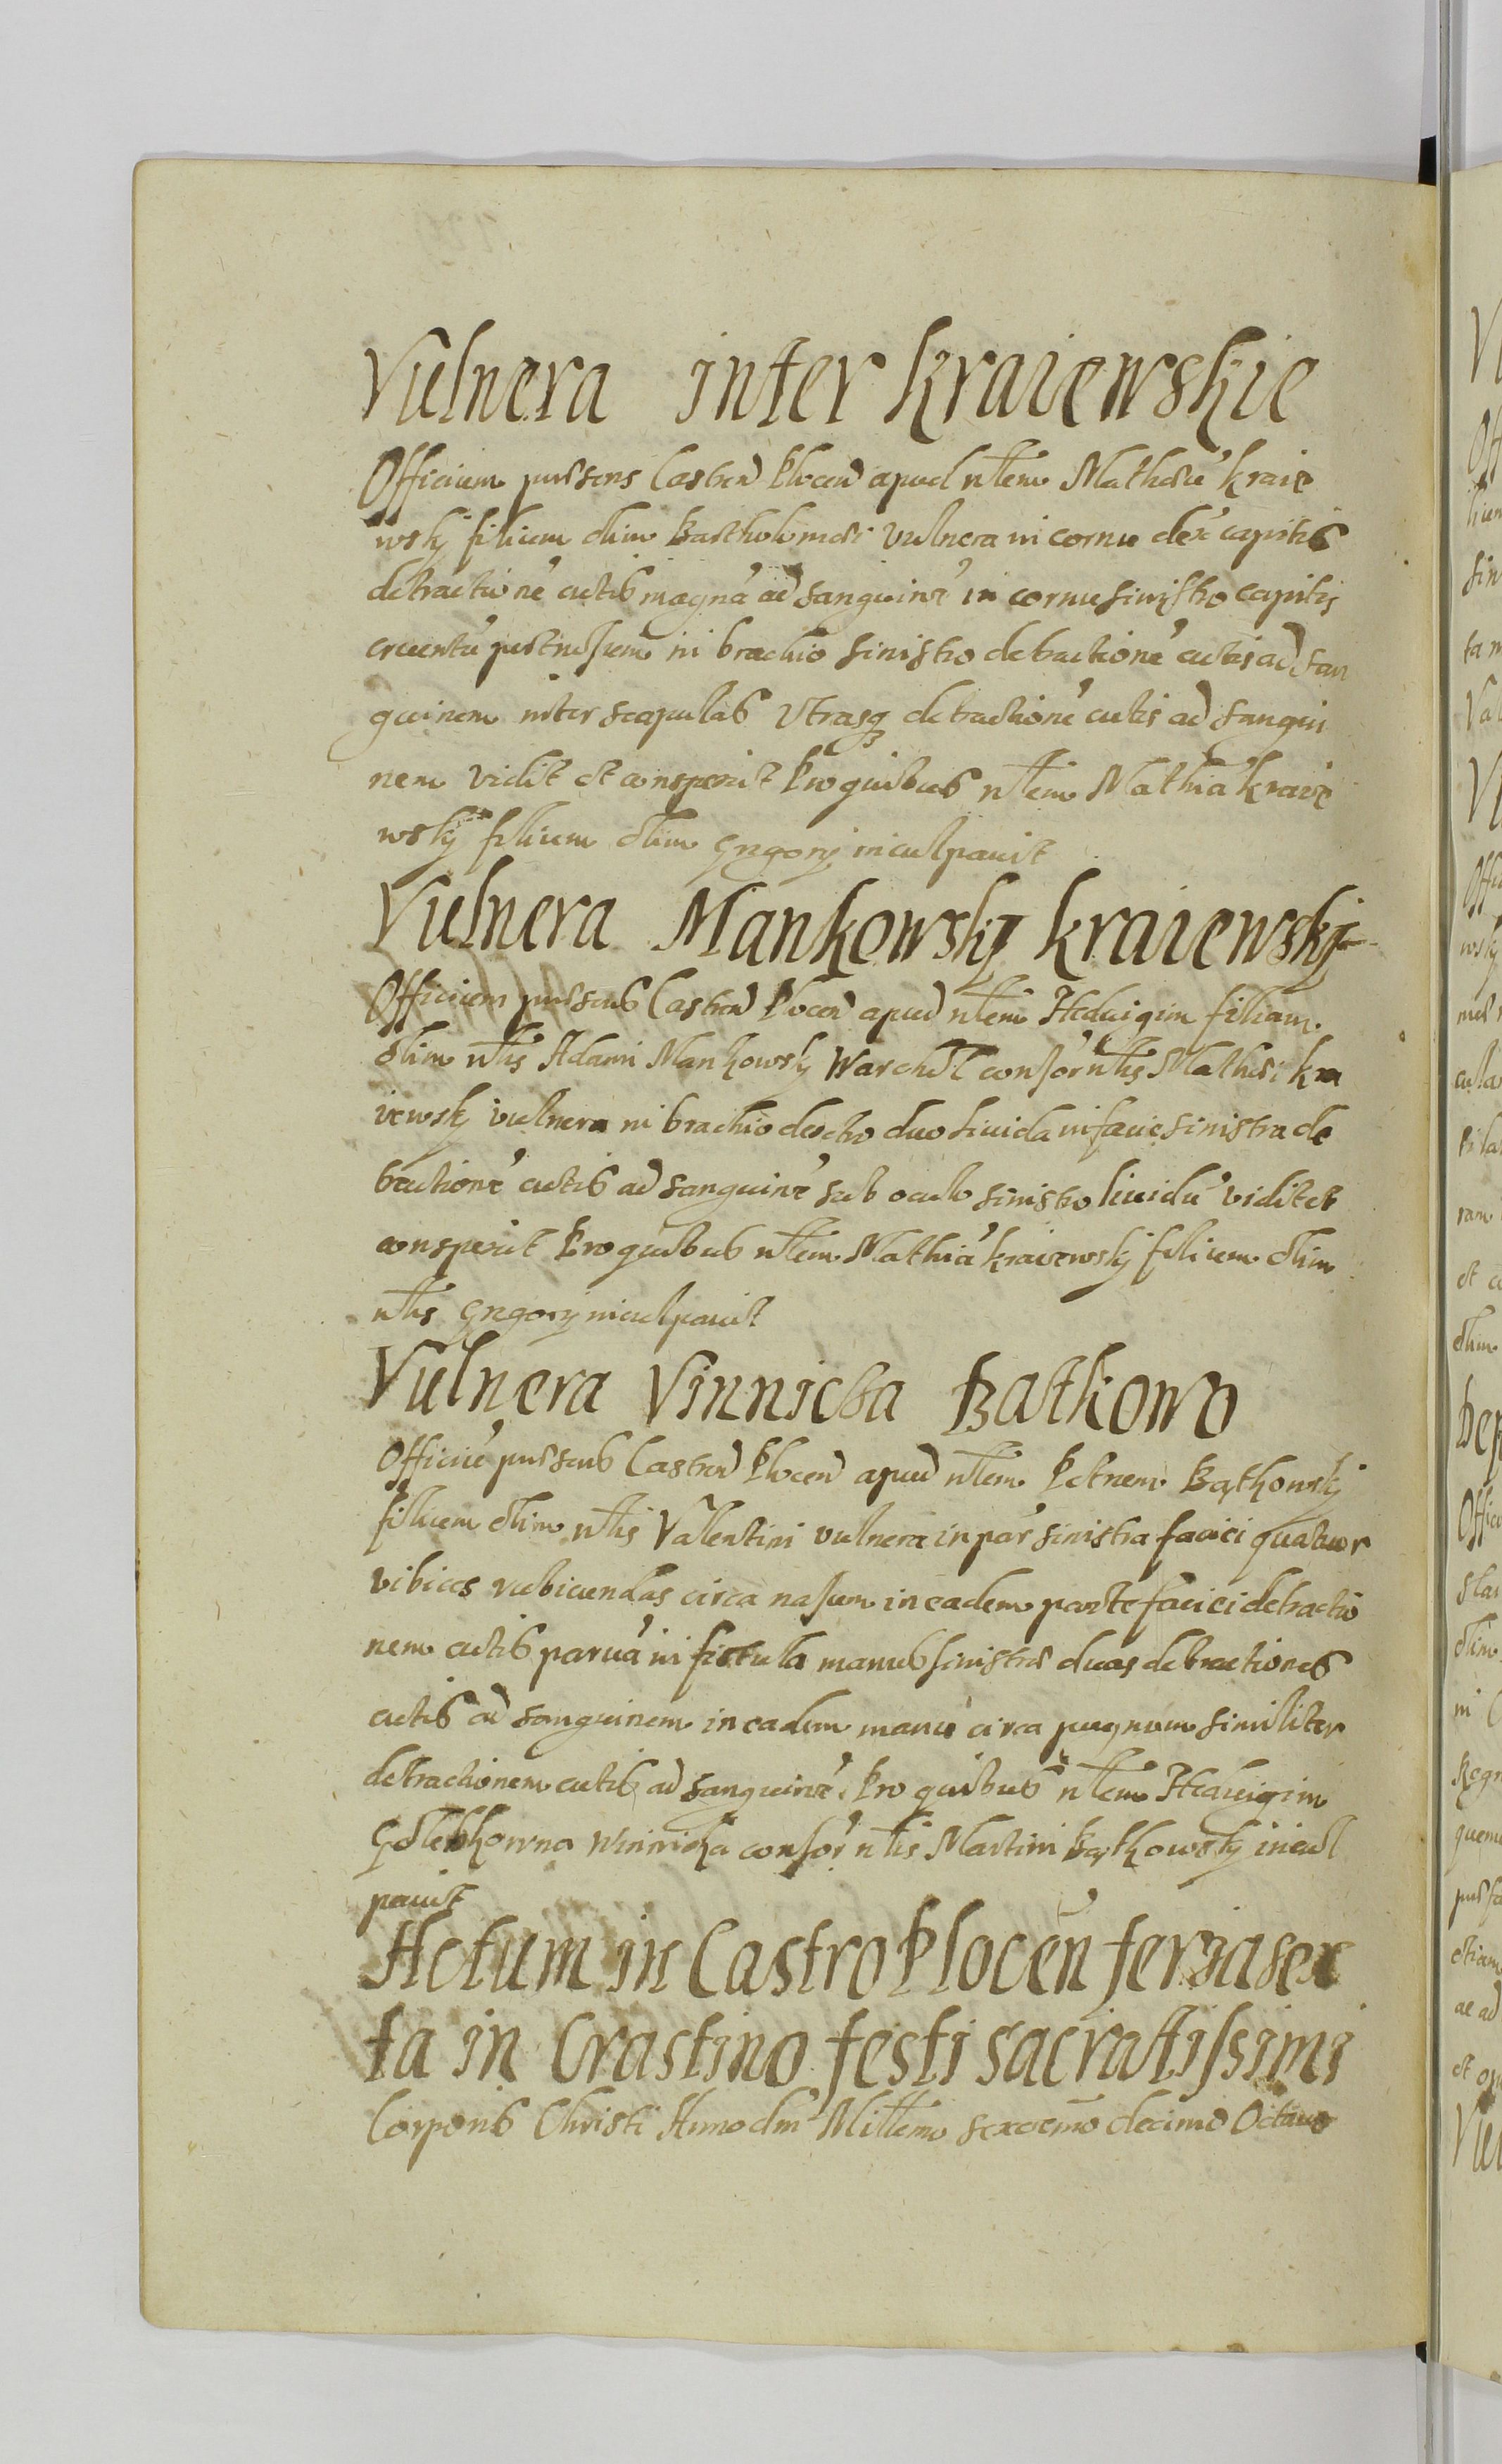 Vulnera inter Kraiewskie
Officium præsens Castren Plocen apud nlem Mathæu Kraie
wskj filium olim Bartholomæi vulnera in cornu dex capitis
detractione cutis magna ad sanguine in cornu sinistro capitis
cruentu in brachio sinistro detractione cutis ad san
guinem inter scapulas utrasq detractione cutis ad sangui
nem vidit et conspexit Pro quibus nlem Mathia Kraie
wskj filium olim Gregorij inculpauit
Vulnera Mankowskij Kraiewskj
Officium præsens Castren Plocen apud nlem Heduigim filiam
olim nlis Adami Mankowskj Warchol consor nlis Mathæi Kra
iewskj vulnera in brachio dextro duo liuida in facie sinistra de
tractione cutis ad sanguine sub oculo sinistro liuidu vidit et
conspexit Pro quibus nlem Mathia Kraiewskj filium olim
nlis Gregorij inculpauit
Vulnera Vinnicka Batkowo
Officiu præsens Castren Plocen apud nlem Petrum Bąthowskj
filium olim nlis Valentini vulnera in par sinistra faciei quatuor
vibices rubicundas circa nasum in eadem parte faciei detractio
nem cutis parua in fistula manus sinistræ duas detractiones
cutis ad sanguinem in eadem manu circa pugnum similiter
detractionem cutis ad sanguine. Pro quibus nlem Hedvigim
Winnicka consor nlis Martini Bąthowskj incul
pauit
Actum in Castro Plocen feria sex
ta in Crastino festi sacratissimi
Corporis Christi Anno dni Millemo sexcemo decimo Octauo